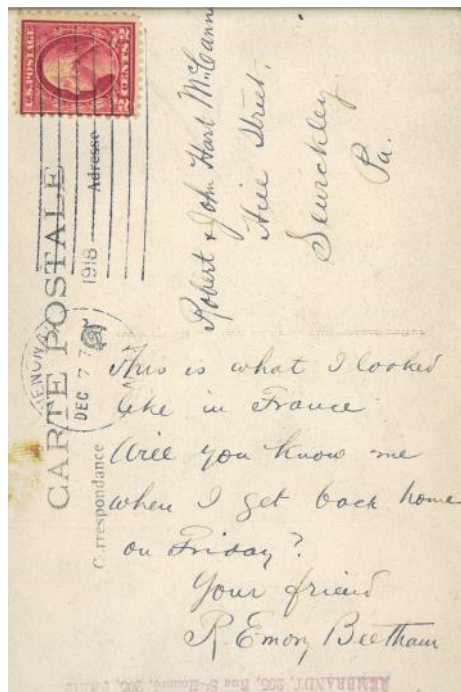 U.S. POSTAGE
2 CENTS 2
CARTE POSTALE
Adresse
1918
DEC 7
Correspondance
Robert & John Hart McCann
Hill Street.
Sewickley
Pa.
This is what I looked
like in France
Will you know me
when I get back home
on Friday?
Your friend
R. Emory Beetham
REMBRANDT, 205, Rue St-Honoré, 205, PARIS